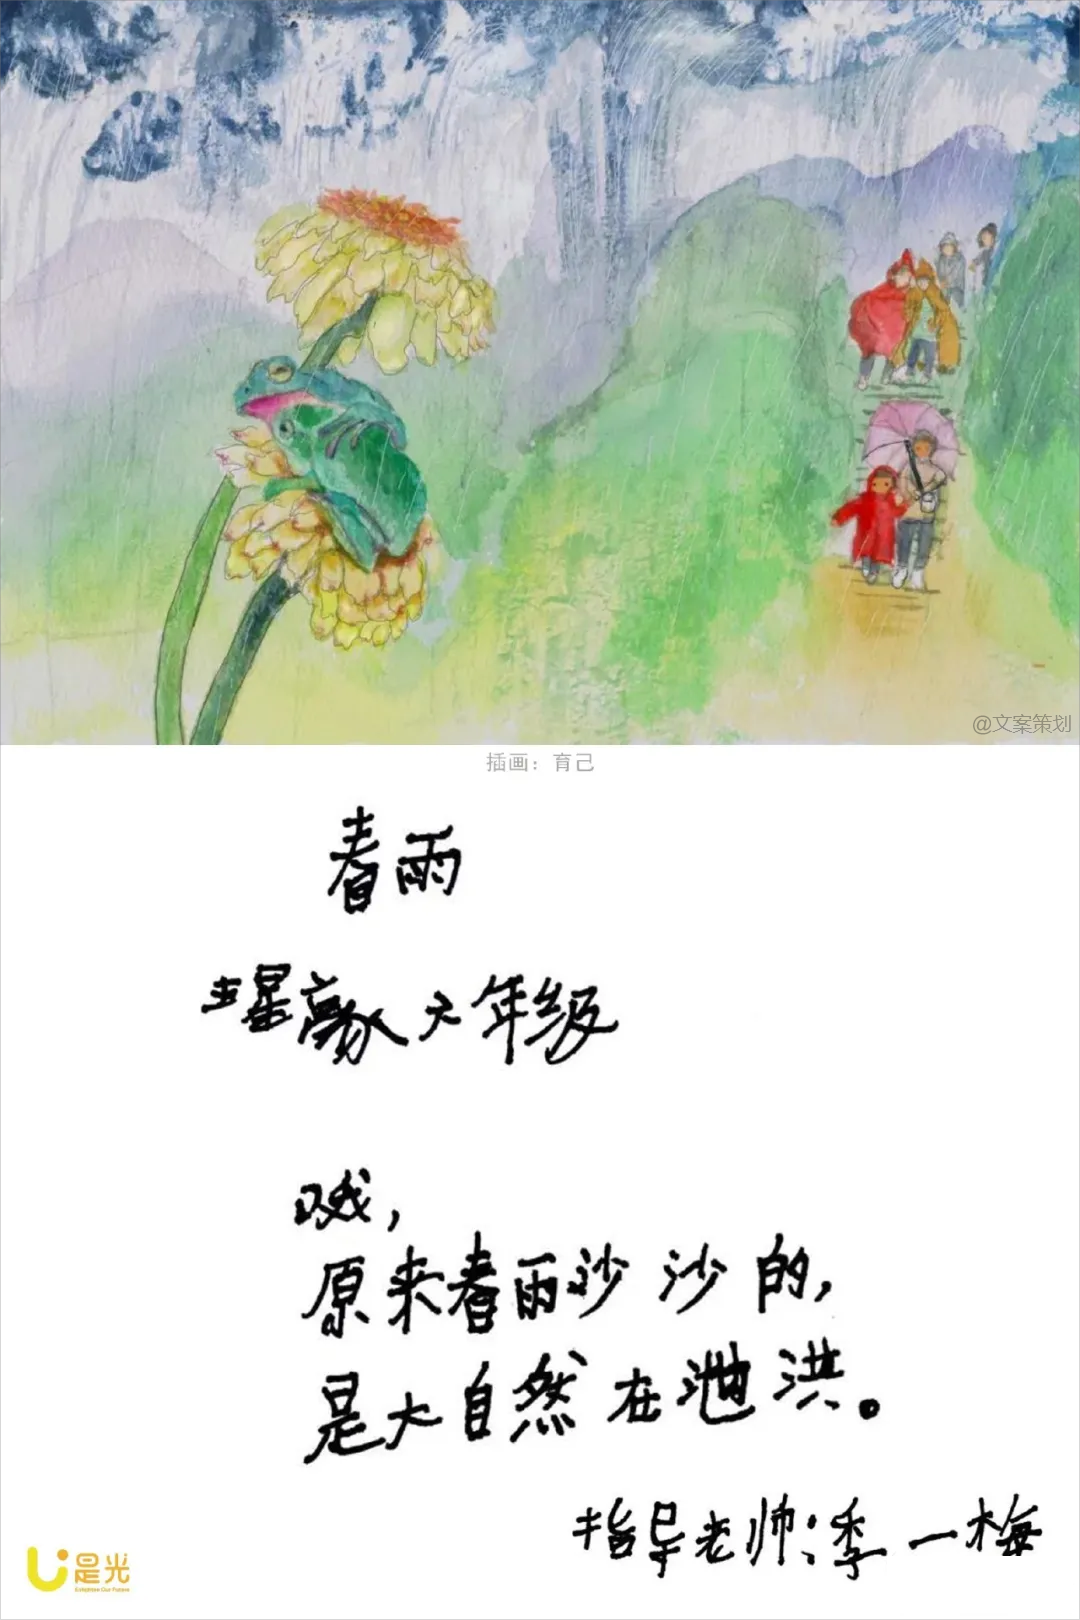 @文案策划
插画：育己
春雨
六年级
哦，
原来春雨沙沙的，
是大自然在泄洪。
指导老师：季一梅
是光